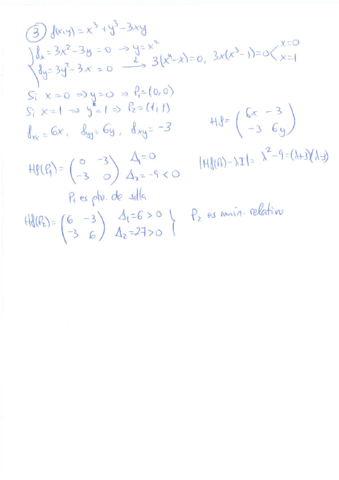 ③ f(x,y) = x³ + y³ - 3xy
fx = 3x² - 3y = 0 → y = x²
fy = 3y² - 3x = 0 → 3(x⁴ - x) = 0, 3x(x³ - 1) = 0 < x = 0
x = 1
Si x = 0 ⇒ y = 0 ⇒ P₁ = (0,0)
Si x = 1 ⇒ y = 1 ⇒ P₂ = (1,1)
fxx = 6x, fyy = 6y, fxy = -3
Hf = ( 6x -3
-3 6y )
Hf(P₁) = ( 0 -3 Δ₁ = 0
-3 0 ) Δ₂ = -9 < 0
|Hf(P₁) - λI| = λ² - 9 = (λ+3)(λ-3)
P₁ es pto. de silla
Hf(P₂) = ( 6 -3 Δ₁ = 6 > 0
-3 6 ) Δ₂ = 27 > 0 } P₂ es mín. relativo